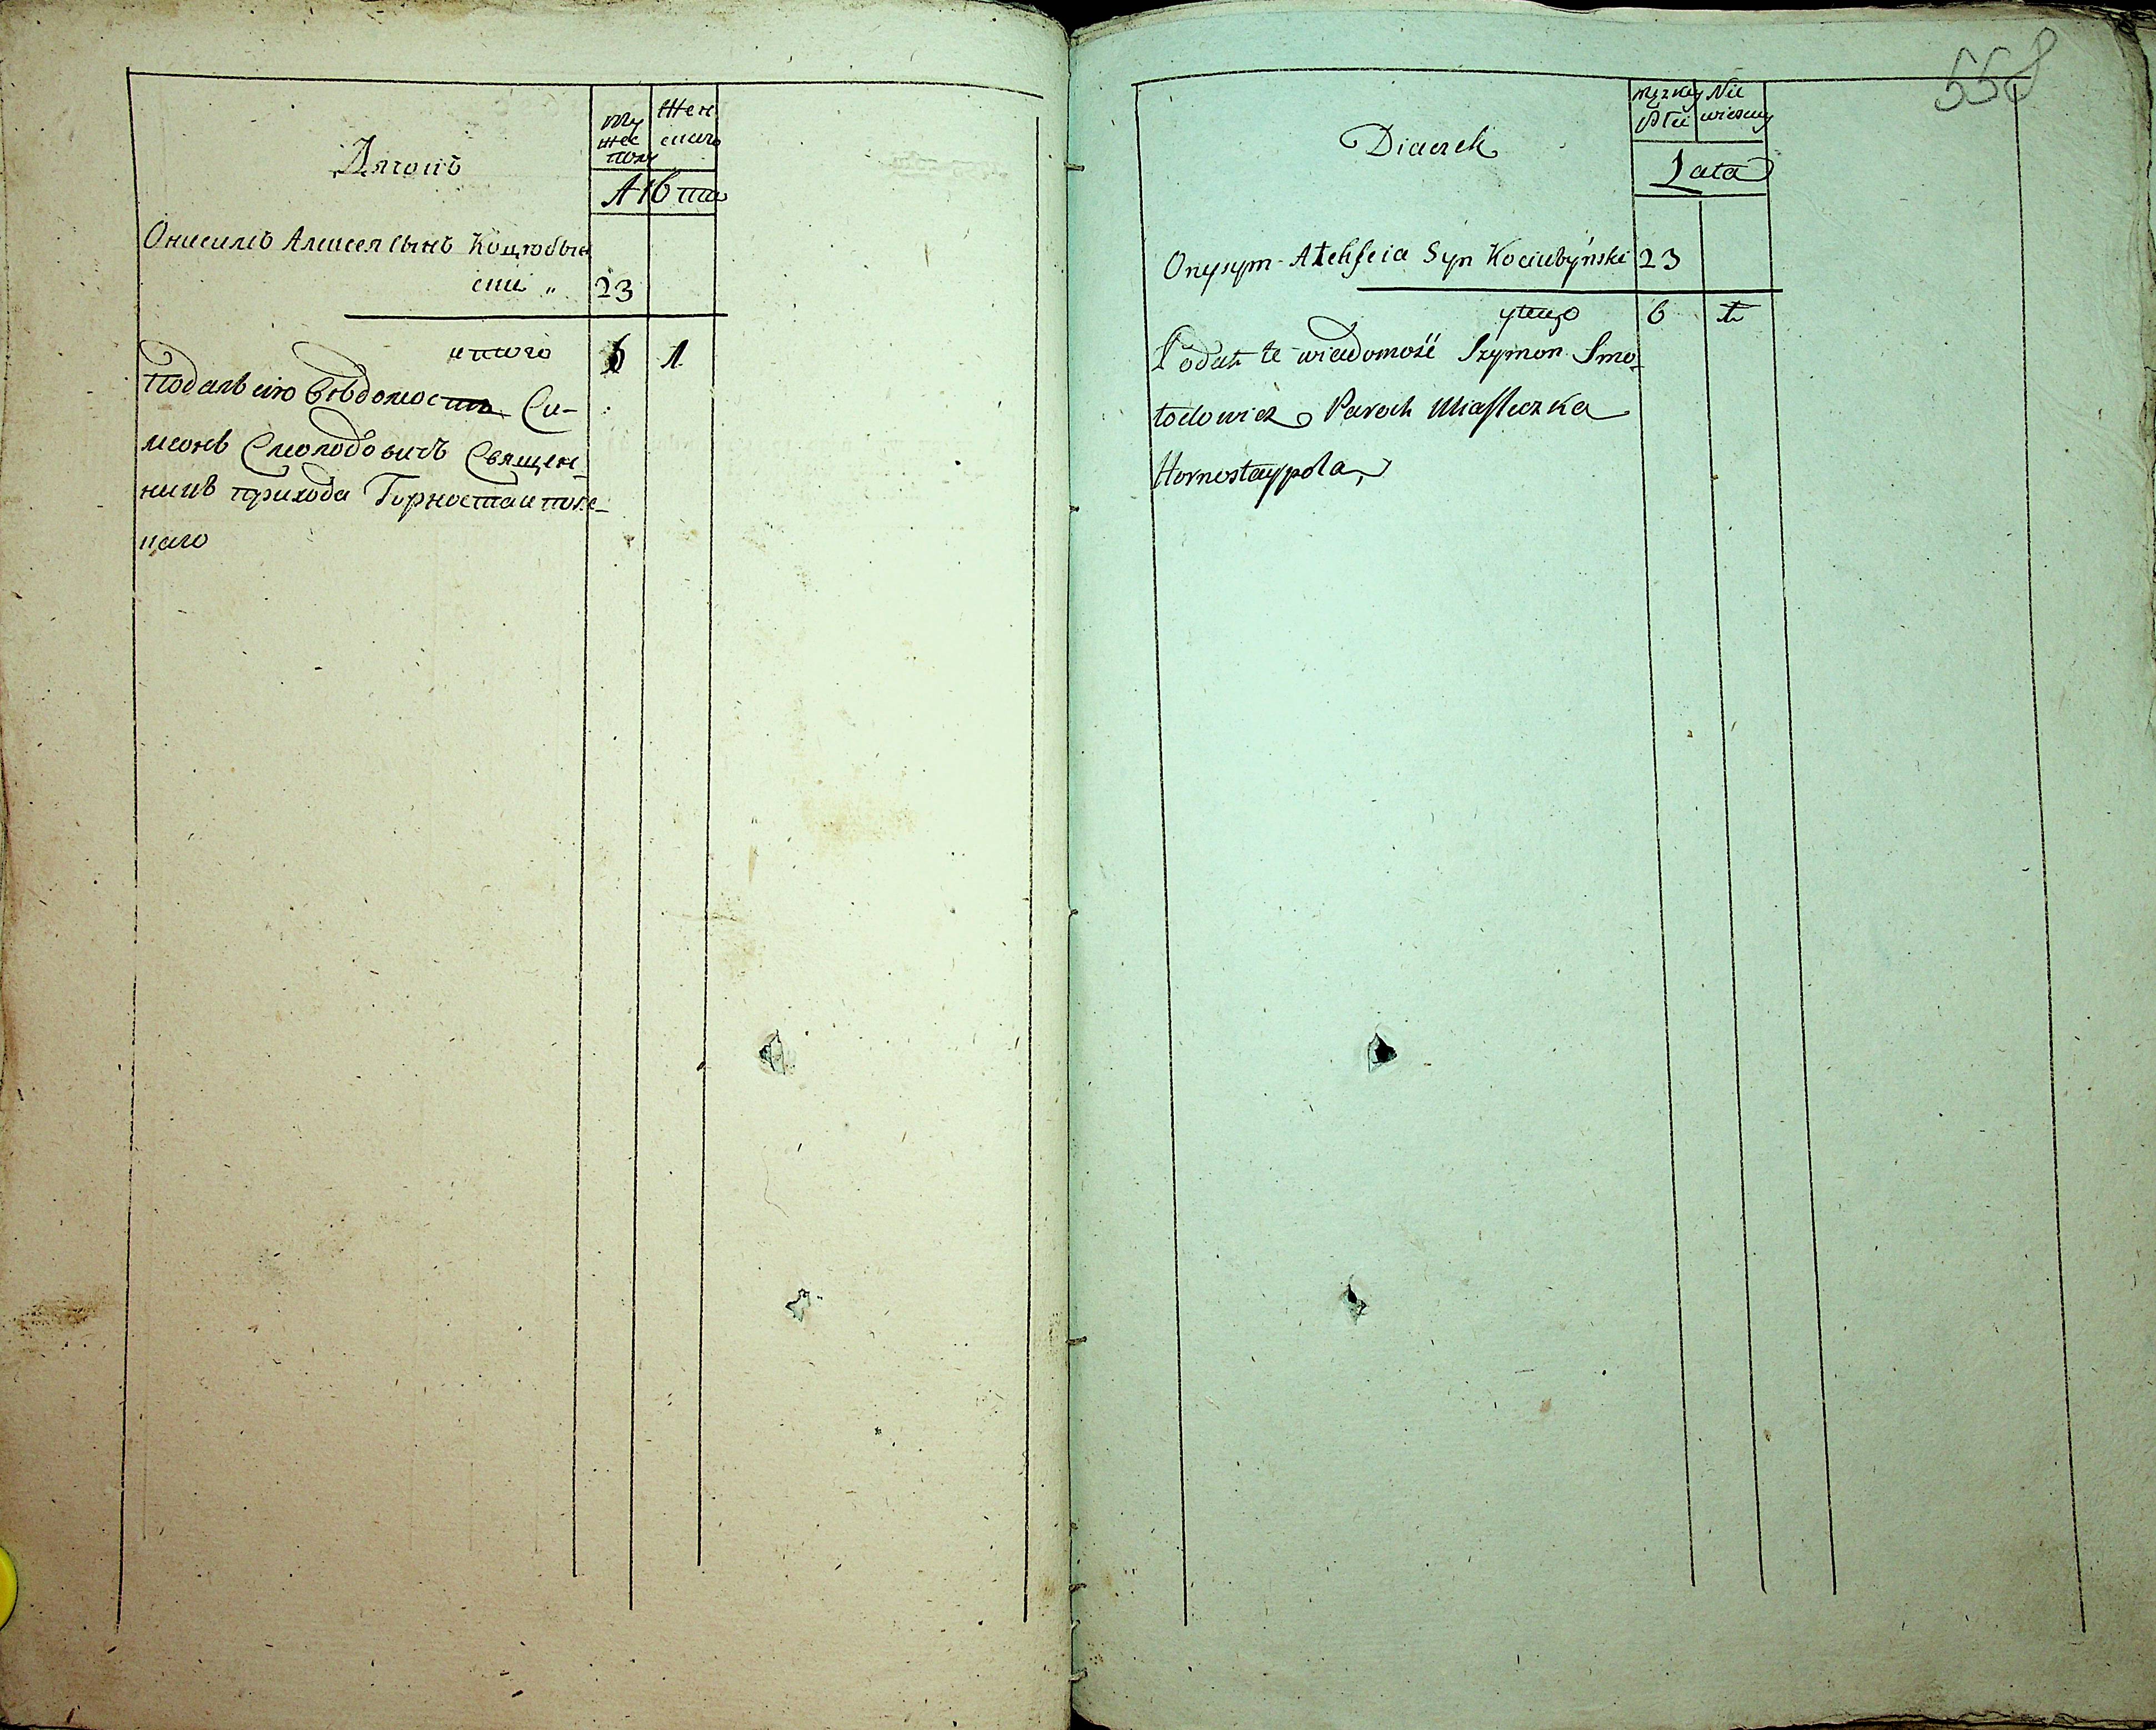 Дячокъ
Му
жес
полу
Жен
скаго
Лѣта
Онисимъ Алексея Сынъ Коцюбын
скій „ 23
итого 6 1
Подалъ сію Вѣдомость Си-
меонъ Смолодовичъ Священ
никъ прихода Горностайполс-
каго
558
Diaczek
Męzkey
Płci
Nie
wiescey
Lata
Onysym Alekseia Syn Kociubyński 23
ytego 6 1
Podał te wiadomość Szymon Smo-
łodowicz Paroch Miasteczka
Hornostaypola